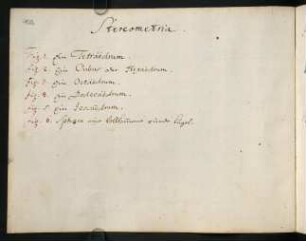 Stereometria.
Fig. 1. Ein Tetraëdrum.
Fig. 2. Ein Cubus oder Hexaëdrum.
Fig. 3. Ein Octaëdrum.
Fig. 4. Ein Dodecaëdrum.
Fig. 5. Ein Icosaëdrum.
Fig. 6. Sphaera eine vollkommene runde Kugel.